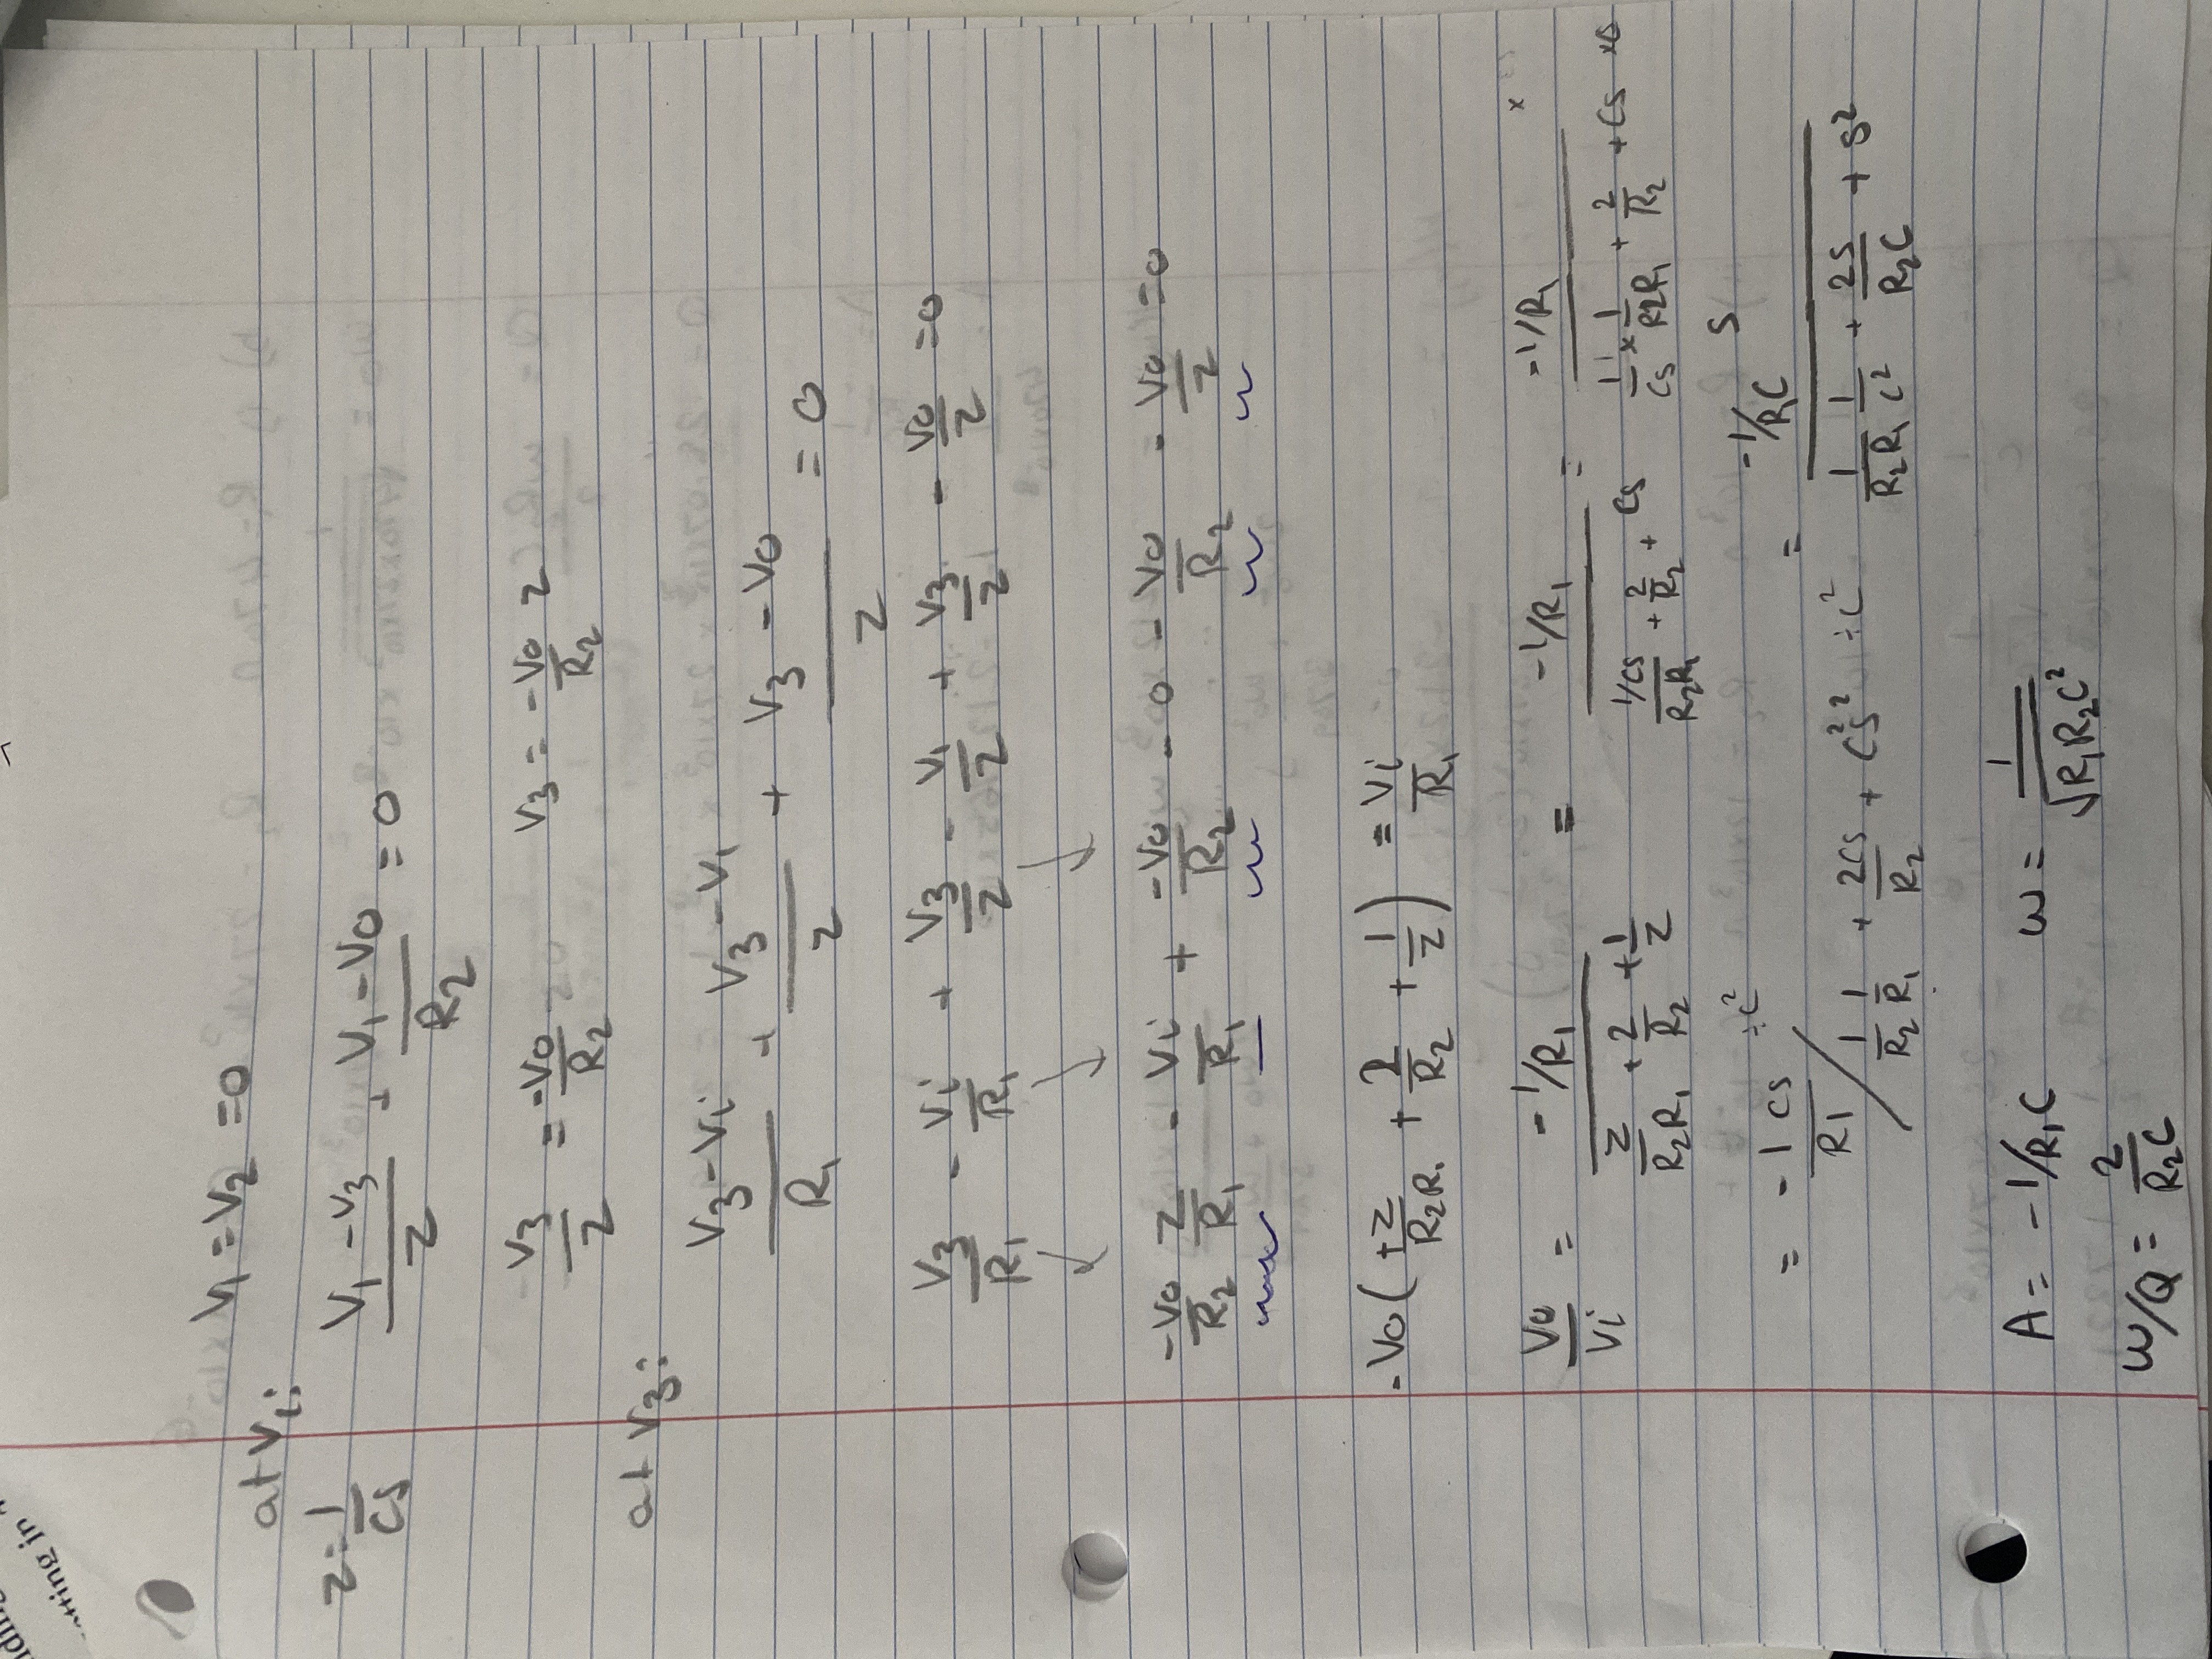 etting in
V1 = V2 = 0
at Vi:
z = 1/cs   (V1 - V3)/z + (V1 - Vo)/R2 = 0
-V3/z = -Vo/R2   V3 = -Vo/R2 z
at V3:
(V3 - Vi)/R1 + (V3 - V1)/z + (V3 - Vo)/z = 0
V3/R1 - Vi/R1 + V3/z - V1/z + V3/z - Vo/z = 0
-Vo/R2 z/R1 - Vi/R1 + -Vo/R2 - 0 - Vo/R2 - Vo/z = 0
-Vo(+z/R2R1 + 2/R2 + 1/z) = Vi/R1
Vo/Vi = (-1/R1)/(z/R2R1 + 2/R2 + 1/z) = (-1/R1)/((1/cs)/R2R1 + 2/R2 + cs) = (-1/R1)/(1/cs × 1/R2R1 + 2/R2 + cs)
= (-1 cs)/R1 ÷c² / (1/R2 1/R1 + 2cs/R2 + c²s²) ÷c² = (-1/R1C s)/(1/R2R1 1/c² + 2s/R2C + s²)
A = -1/R1C   ω = 1/√R1R2C²
ω/Q = 2/R2C